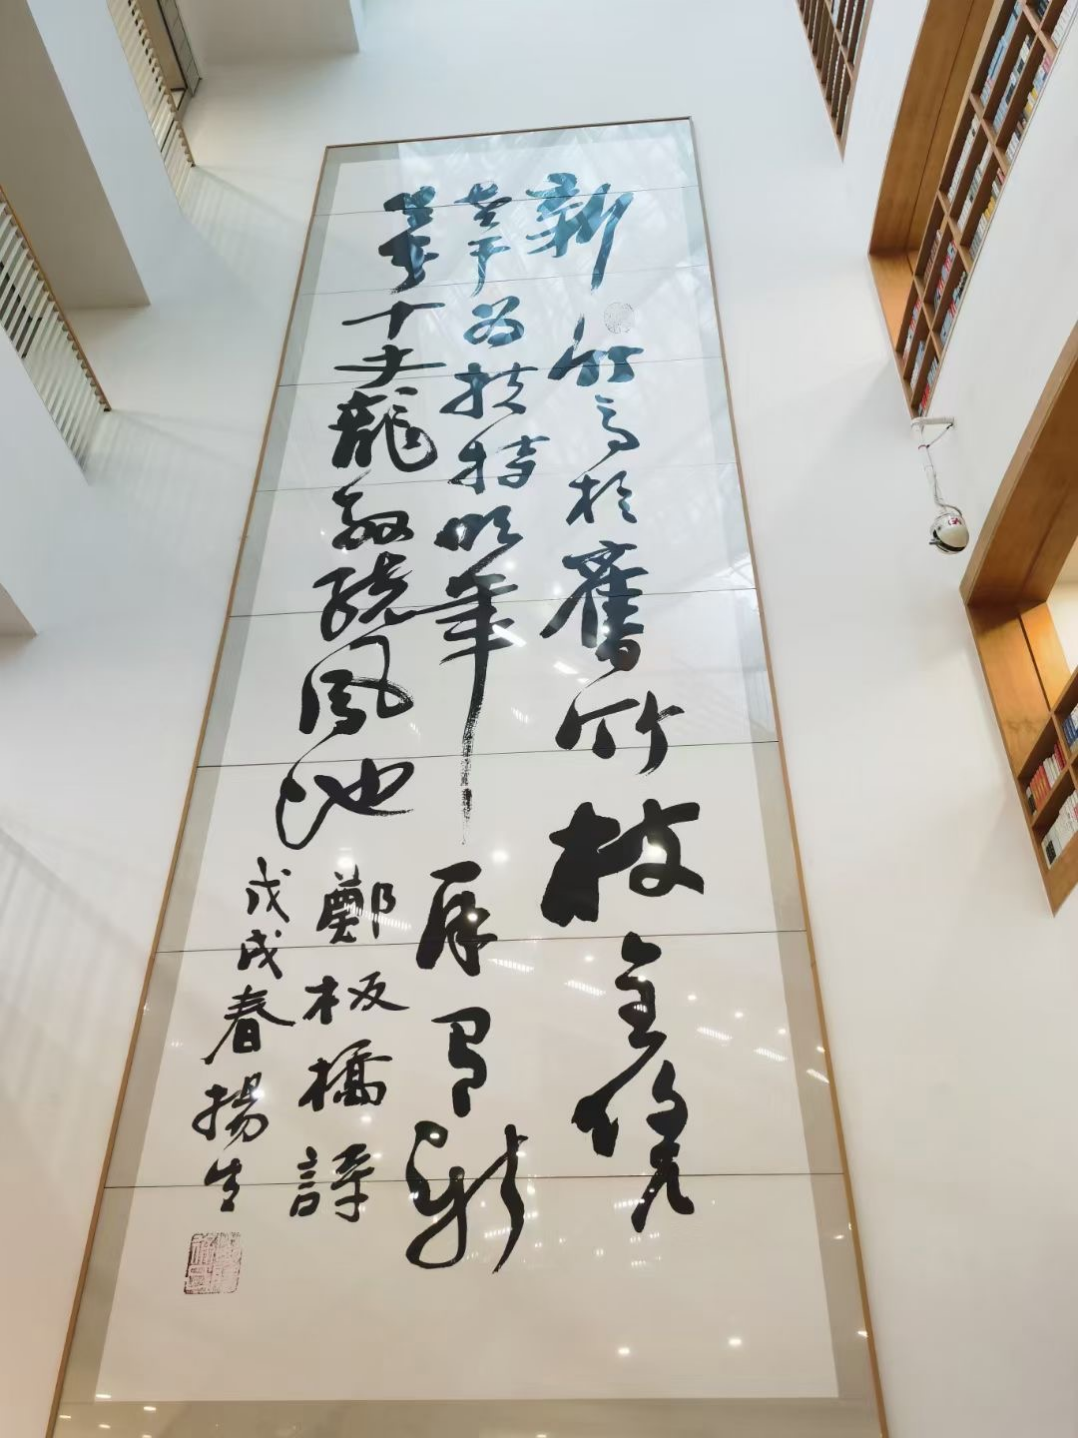 新竹高於舊竹枝全凭
老干为扶持明年有新
生者十丈龍孫繞鳳池
鄭板橋詩
戊戌春揚生